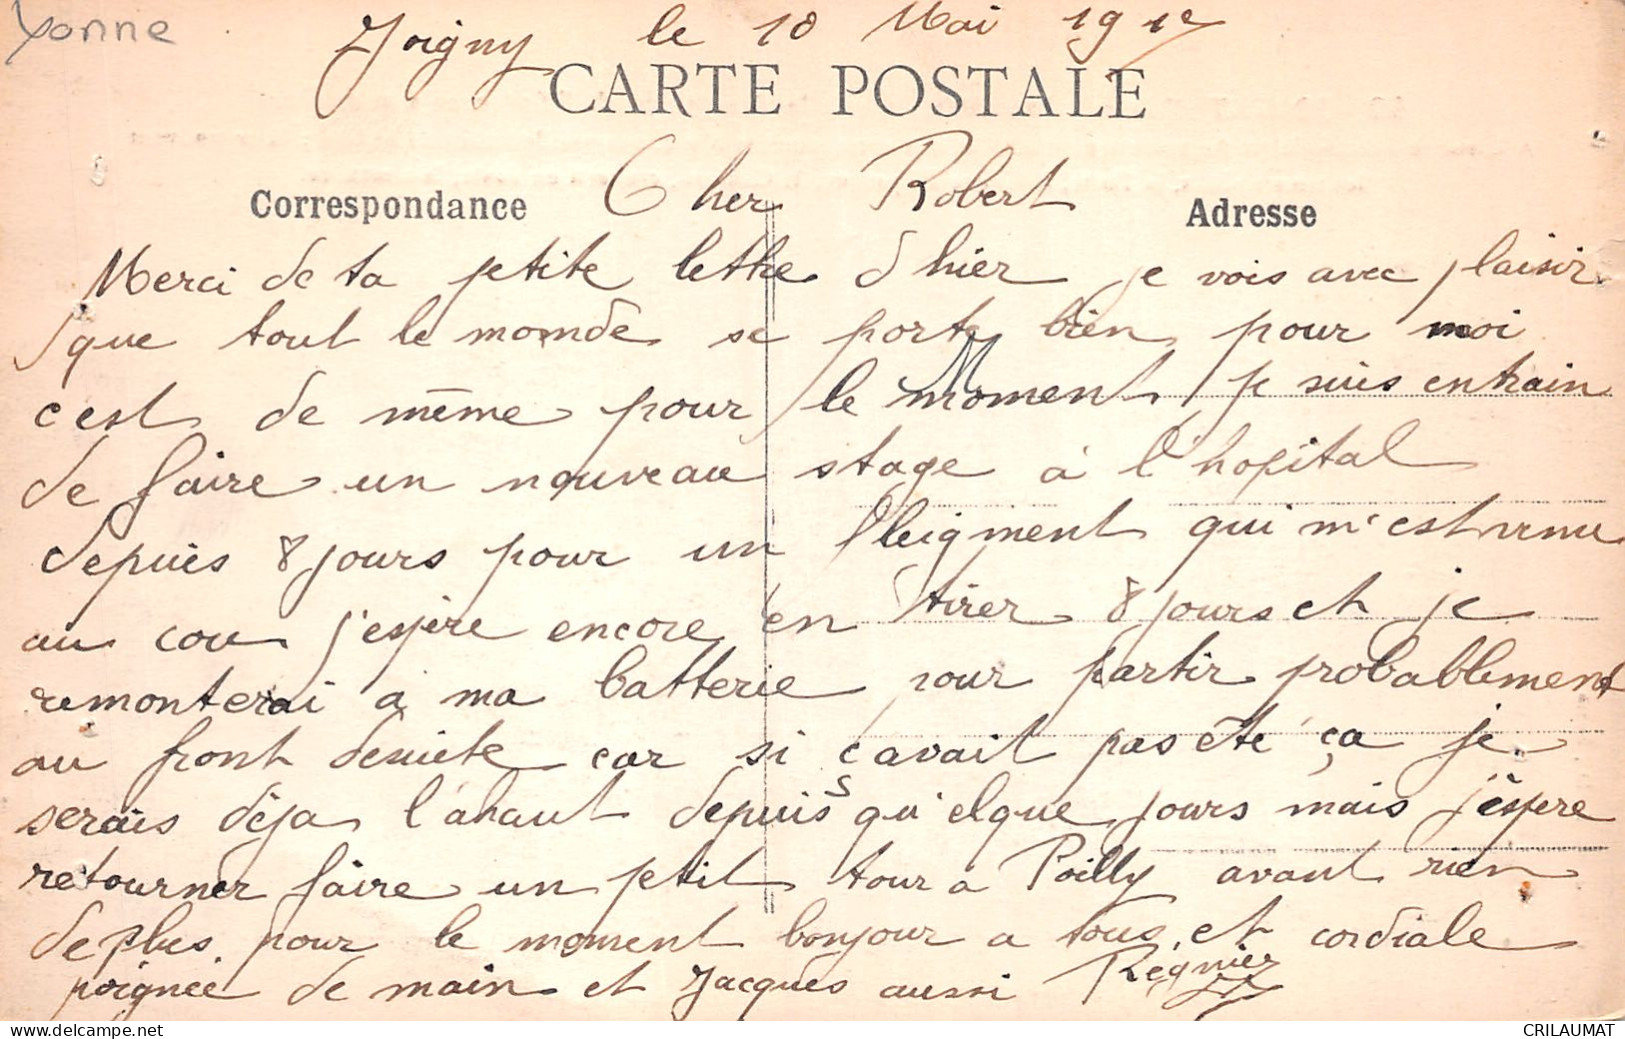 Yonne
Joigny le 10 Mai 1917
CARTE POSTALE
Correspondance
Cher Robert
Adresse
Merci de ta petite lettre d hier je vois avec plaisir
que tout le monde se porte bien pour moi
c'est de même pour le Moment je suis entrain
de faire un nouveau stage à l'hopital
depuis 8 jours pour un fleigment qui m'est venu
au cou j'espère encore en tirer 8 jours et je
remonterai a ma batterie pour partir probablement
au front de suite car si c avait pas été ça je
serais déja l'ahaut depuis qu'elque jours mais j'éspere
retourner faire un petit tour a Poilly avant rien
de plus pour le moment bonjour a tous et cordiale
poignée de main et Jacques aussi Regnier
CRILAUMAT